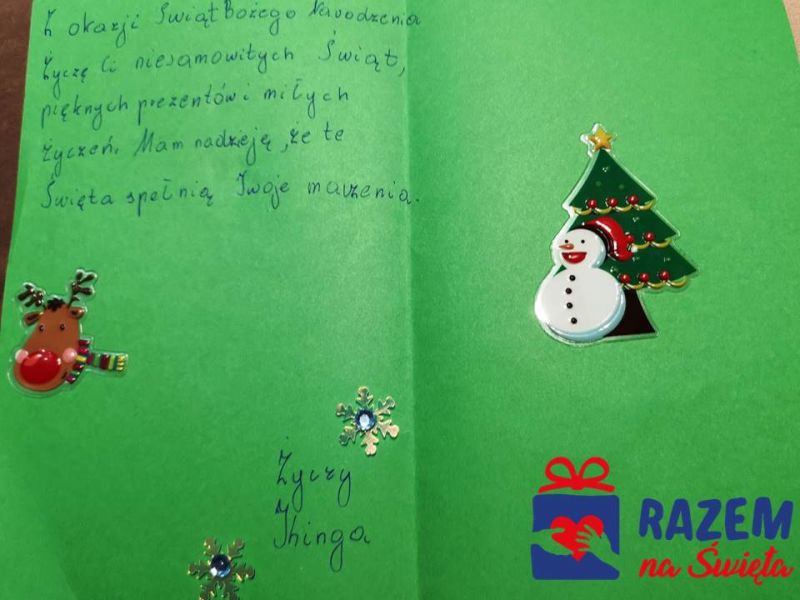 Z okazji Świąt Bożego Narodzenia
życzę Ci niesamowitych Świąt,
pięknych prezentów i miłych
życzeń. Mam nadzieję, że te
Święta spełnią Twoje marzenia.
Życzy
Ihinga
RAZEM
na Święta